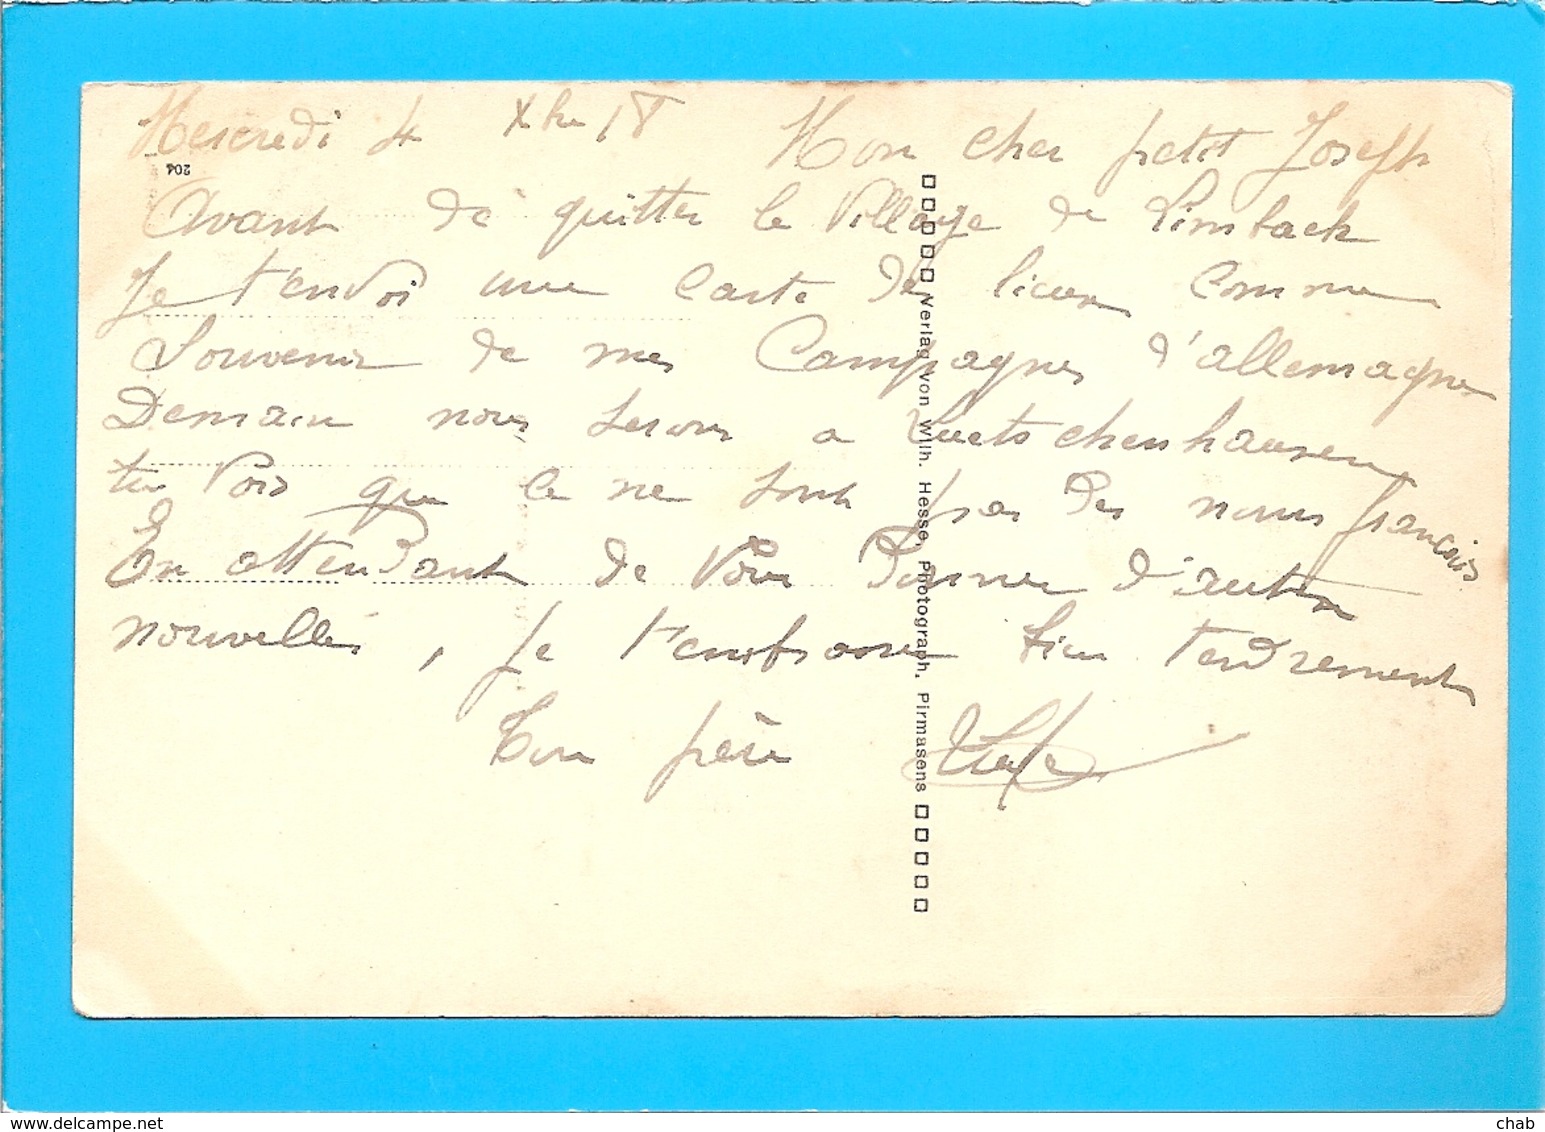 Mercredi 4 Xbre 18 Mon cher petit Joseph
204
Avant de quitter le Village de Limbach
Je t'envoi une carte de lieu comme
Souvenir de mes Campagnes d'allemagne
Demain nous serons a
tu vois que ce ne sont pas des noms français
En attendant de vous donner d'autre
nouvelles, je t'embrasse bien tendrement
Ton père
Verlag von Wilh. Hesse, Photograph, Pirmasens
delcampe.net
chab